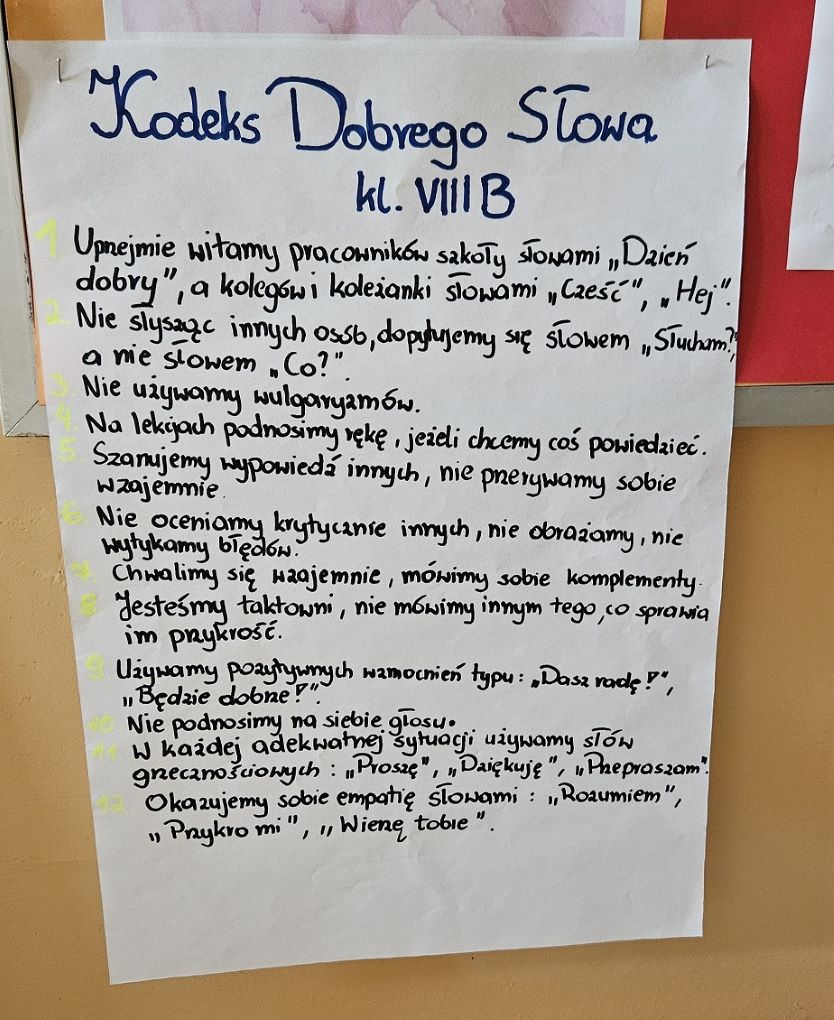 Kodeks Dobrego Słowa
kl. VIII B
1. Uprzejmie witamy pracowników szkoły słowami „Dzień
dobry”, a kolegów i koleżanki słowami „Cześć”, „Hej”.
2. Nie słysząc innych osób, dopytujemy się słowem „Słucham?”,
a nie słowem „Co?”.
3. Nie używamy wulgaryzmów.
4. Na lekcjach podnosimy rękę, jeżeli chcemy coś powiedzieć.
5. Szanujemy wypowiedź innych, nie przerywamy sobie
wzajemnie.
6. Nie oceniamy krytycznie innych, nie obrażamy, nie
wytykamy błędów.
7. Chwalimy się wzajemnie, mówimy sobie komplementy.
8. Jesteśmy taktowni, nie mówimy innym tego, co sprawia
im przykrość.
9. Używamy pozytywnych wzmocnień typu: „Dasz radę!”,
„Będzie dobrze!”.
10. Nie podnosimy na siebie głosu.
11. W każdej adekwatnej sytuacji używamy słów
grzecznościowych: „Proszę”, „Dziękuję”, „Przepraszam”.
12. Okazujemy sobie empatię słowami: „Rozumiem”,
„Przykro mi”, „Wierzę tobie”.